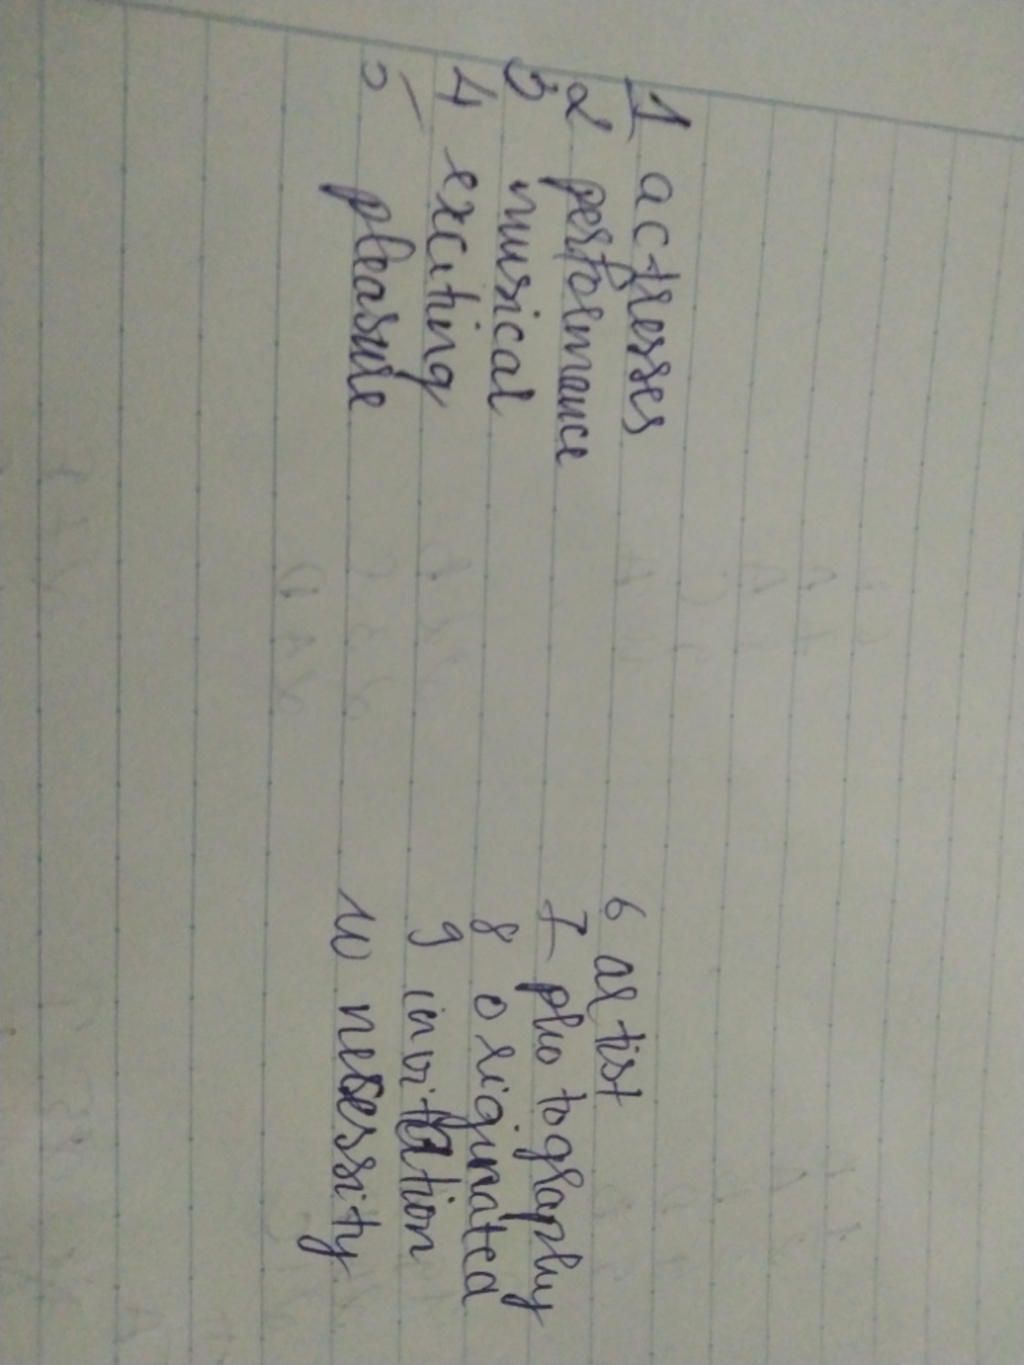 1 actresses
2 performance
3 musical
4 exciting
5 pleasure
6 artist
7 photography
8 originated
9 invitation
10 necessity